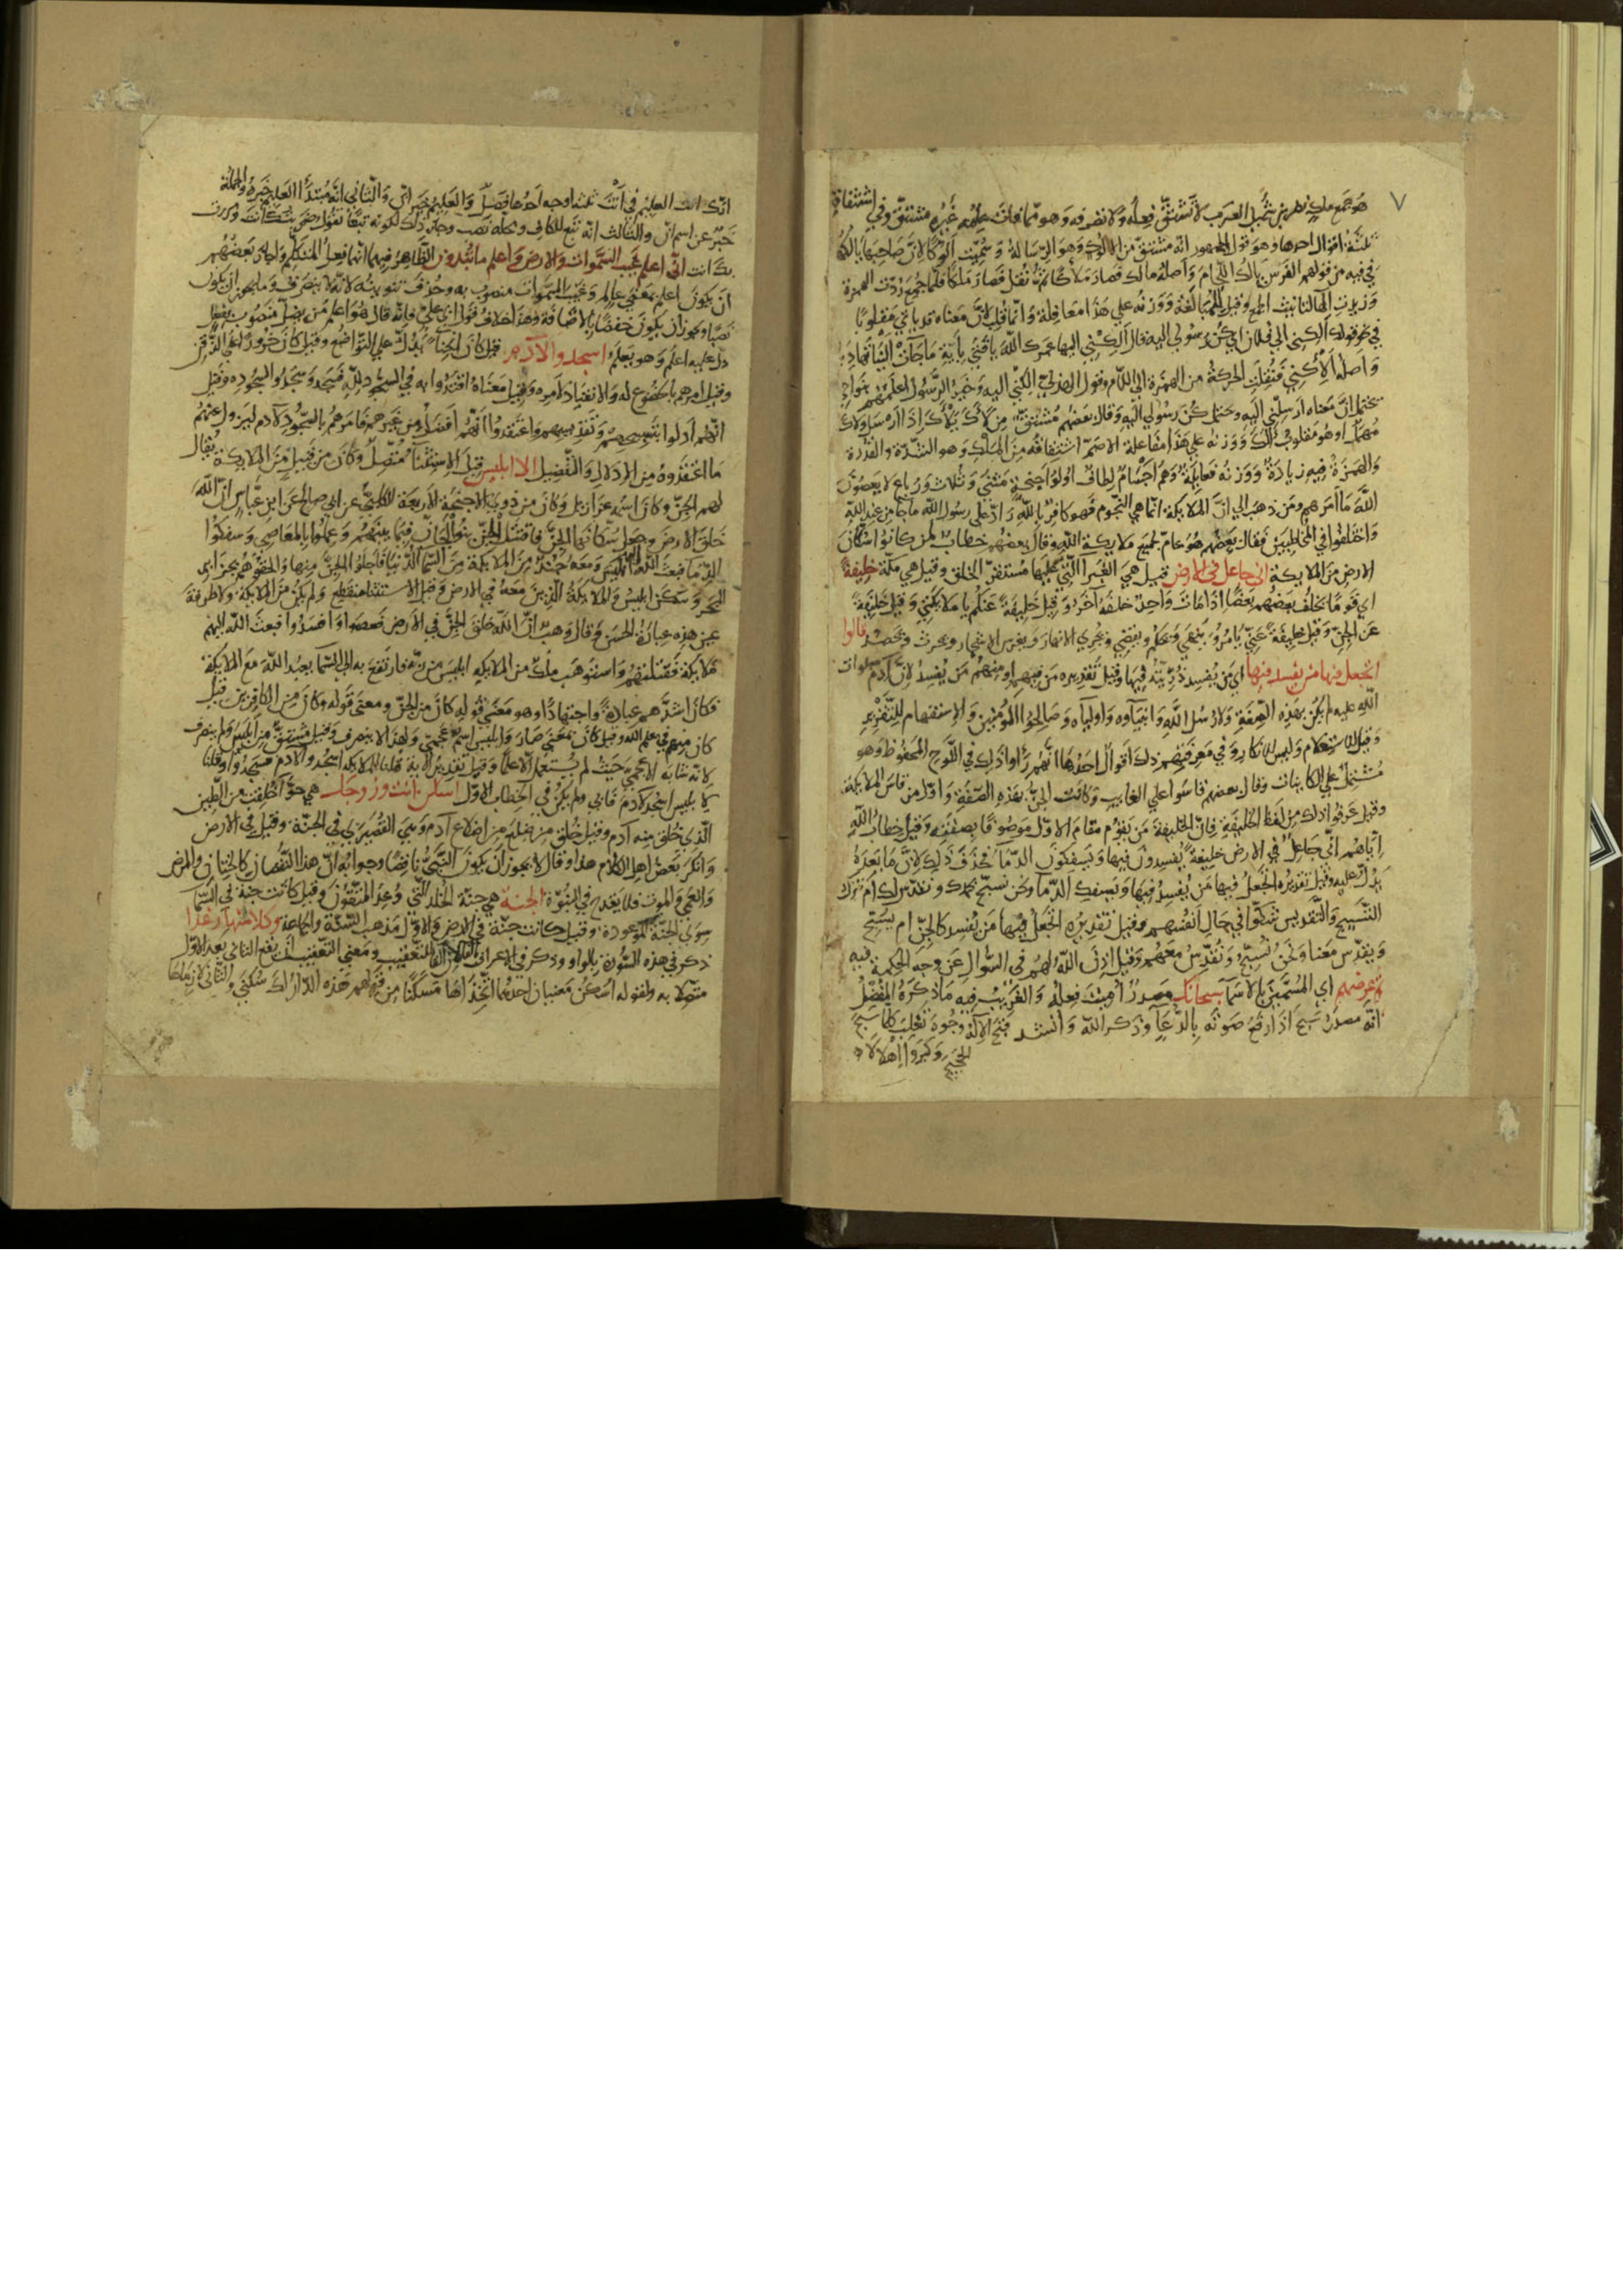 ٧
هو جمع ملك نظر بن شميل العرب لا تشتق فعله ولا تصرفه وهو مما فات علمه غيره مشتق وفي اشتقاقه
ثلثة اقوال احدها وهو قول الجمهور انه مشتق من الالوك وهو الرسالة وسميت الوكا لان صاحبها يالكها
في فيه من قولهم الفرس يالك اللجام واصله مالك فصار ملاكا ثم نقل فصار ملكا فلما جمع ردت الهمزة
وزيدت الهاء لتانيث الجمع وقيل للمبالغة ووزنه علي هذا معافلة وانما قلب لان معناه قد ياتي مقلوبا
في نحو قولك الكني الي فلان اي كن رسولي اليه قال الكني اليها عمرك الله يا فتي باية ما جات الينا تهاديا
واصله الاكني فنقلت الحركة من الهمزة الي اللام وقول الهذلي الكني اليه وخير الرسول اعلمهم بنواحي
يحتمل ان معناه ارسلني اليه ويحتمل كن رسولي اليه وقال بعضهم مشتق من لاك يلاك اذا ارسل ولاك
مهمل او هو مقلوب الك ووزنه علي هذا مفاعلة الاصم اشتقاقه من الملك وهو الشدة والقدرة
والهمزة فيه زيادة ووزنه فعايلة وهم اجسام لطاف اولوا اجنحة مثني وثلاث ورباع لا يعصون
الله ما امرهم ومن ذهب الي ان الملايكة انما هي النجوم فهو كافر بالله راد علي رسول الله ما جا من عند الله
واختلفوا في المخاطبين فقال بعضهم هو عام لجميع ملايكة الله وقال بعضهم خطاب لمن كانوا سكان
الارض من الملايكة اني جاعل في الارض قيل هي الغبرا التي عليها مستقر الخلق وقيل هي مكة خليفة
اي قوما يخلف بعضهم بعضا اذا مات واحد خلفه اخر وقيل خليفة عنكم يا ملايكتي وقيل خليفة
عن الجن وقيل خليفة عني يامر وينهي ويحكم ويقضي ويجري الانهار ويغرس الاشجار ويحرث ويحصد قالوا
اتجعل فيها من يفسد فيها اي من يفسد ذريته فيها وقيل تقديره من فيهم او منهم من يفسد لان ادم صلوات
الله عليه لم يكن بهذه الصفة ولا رسل الله وانبياوه واولياه وصالحوا المومنين والاستفهام للتقرير
وقيل للاستعلام وليس للانكار وفي معرفتهم ذلك اقوال احدها انهم راوا ذلك في اللوح المحفوظ وهو
مشتمل علي الكاينات وقال بعضهم قاسوا علي الغايب وكانت الجن بهذه الصفة واول من قاس الملايكة
وقيل عرفوا ذلك من لفظ الخليفة فان الخليفة من يقوم مقام الاول موصوفا بصفته وقيل خطاب الله
اياهم اني جاعل في الارض خليفة يفسدون فيها ويسفكون الدما فحذف ذلك لان ما بعده
يدل عليه وقيل تقديره اتجعل فيها من يفسد فيها ويسفك الدما ونحن نسبح بحمدك ونقدس لك ام نترك
التسبيح والتقديس شكوا في حال انفسهم وقيل تقديره اتجعل فيها من يفسد كالجن ام يسبح
ويقدس معنا ونحن نسبح ونقدس معهم وقيل اذن الله لهم في السوال عن وجه الحكمة فيه
ثم عرضهم اي المسمين بالاسما سبحانك مصدر اميت فعله والغريب فيه ما ذكره المفضل
انه مصدر سبح اذا رفع صوته بالدعا وذكر الله وانشد قبح الاله وجوه تغلب كلما سبح
الحجيج وكبروا اهلالا
انك انت العليم في انت ثلثة اوجه احدها فصل والعليم خبر ان والثاني انه مبتدا العليم خبره والجملة
خبر عن اسم ان والثالث انه تبع للكاف ومحله نصب وجاز ذلك لكونه تبعا تقول ضربتك انت ومررت
بك انت اني اعلم غيب السموات والارض واعلم ما تبدون الظاهر فيهما انهما فعل المتكلم واجاز بعضهم
ان يكون اعلم بمعني عالم وغيب السموات منصوب به وحذف تنوينه لانه لا ينصرف وما يجوز ان يكون
نصبا ويجوز ان يكون خفضا بالاضافة وهذا خلاف قول ابي علي فانه قال هو اعلم من يضل منصوب بفعل
دل عليه اعلم وهو يعلم اسجدوا لادم قيل كان انحناء يدل علي التواضع وقيل كان خرورا علي الذقن
وقيل امرهم بالخضوع له والانقياد لامره وقيل معناه اقتدوا به في السجود لله فسجد وسجدوا لسجوده وقيل
انهم ادلوا بتسبيحهم وتقديسهم واعتقدوا انهم افضل من غيرهم فامرهم بالسجود لادم ليزول عنهم
ما اعتقدوه من الادلال والتفضيل الا ابليس قيل الاستثناء متصل وكان من قبيل من الملايكة يقال
لهم الجن وكان اسمه عزازيل وكان من ذوي الاجنحة الاربعة الكلبي عن ابي صالح عن ابن عباس ان الله
خلق الارض وجعل سكانها الجن فاقتتل الجن بنو الجان فيما بينهم وعملوا بالمعاصي وسفكوا
الدما فبعث الله ابليس ومعه جند من الملايكة من السما الدنيا فاجلوا الجن منها والحقوهم بجزاير
البحر وسكن ابليس والملايكة الذين معه في الارض وقيل الاستثنا منقطع ولم يكن من الملايكة ولا طرفة
عين هذه عبارة الحسن وقال وهب ان الله خلق الجن في الارض فعصوا وافسدوا فبعث الله اليهم
ملايكة فقتلتهم واستوهب ملك من الملايكة ابليس من ربه فارتفع به الي السما يعبد الله مع الملايكة
فكان اشدهم عبادة واجتهادا وهو معني قوله كان من الجن ومعني قوله وكان من الكافرين قيل
كان منهم في علم الله وقيل كان بمعني صار وابليس اسم عجمي ولهذا لا ينصرف وقيل مشتق من ابلس ولم ينصرف
لانه شابه الاعجمي حيث لم يستعمل الا علما وقيل تقدير الاية قلنا للملايكة اسجدوا لادم فسجدوا وقلنا
يا ابليس اسجد لادم فابي ولم يكن في الخطاب الاول اسكن انت وزوجك هي حوا خلقت من الطين
الذي خلق منه ادم وقيل خلق من ضلع من اضلاع ادم وهي القصيري في الجنة وقيل في الارض
وانكر بعض اهل الكلام هذا وقال لا يجوز ان يكون النبي ناقصا وجوابه ان هذا النقصان كالختان والمرض
والعمي والموت فلا يقدح في النبوة الجنة هي جنة الخلد التي وعد المتقون وقيل كانت جنة في السما
سوي الجنة الموعودة وقيل كانت جنة في الارض والاول مذهب السنة والجماعة وكلا منها رغدا
ذكر في هذه السورة بالواو وذكر في الاعراف بالفا لان الفا للتعقيب ومعني التعقيب ان يقع الثاني بعد الاول
متصلا به ولقوله اسكن معنيان احدهما اتخذاها مسكنا من قولهم هذه الدار لك سكني والثاني لازماها